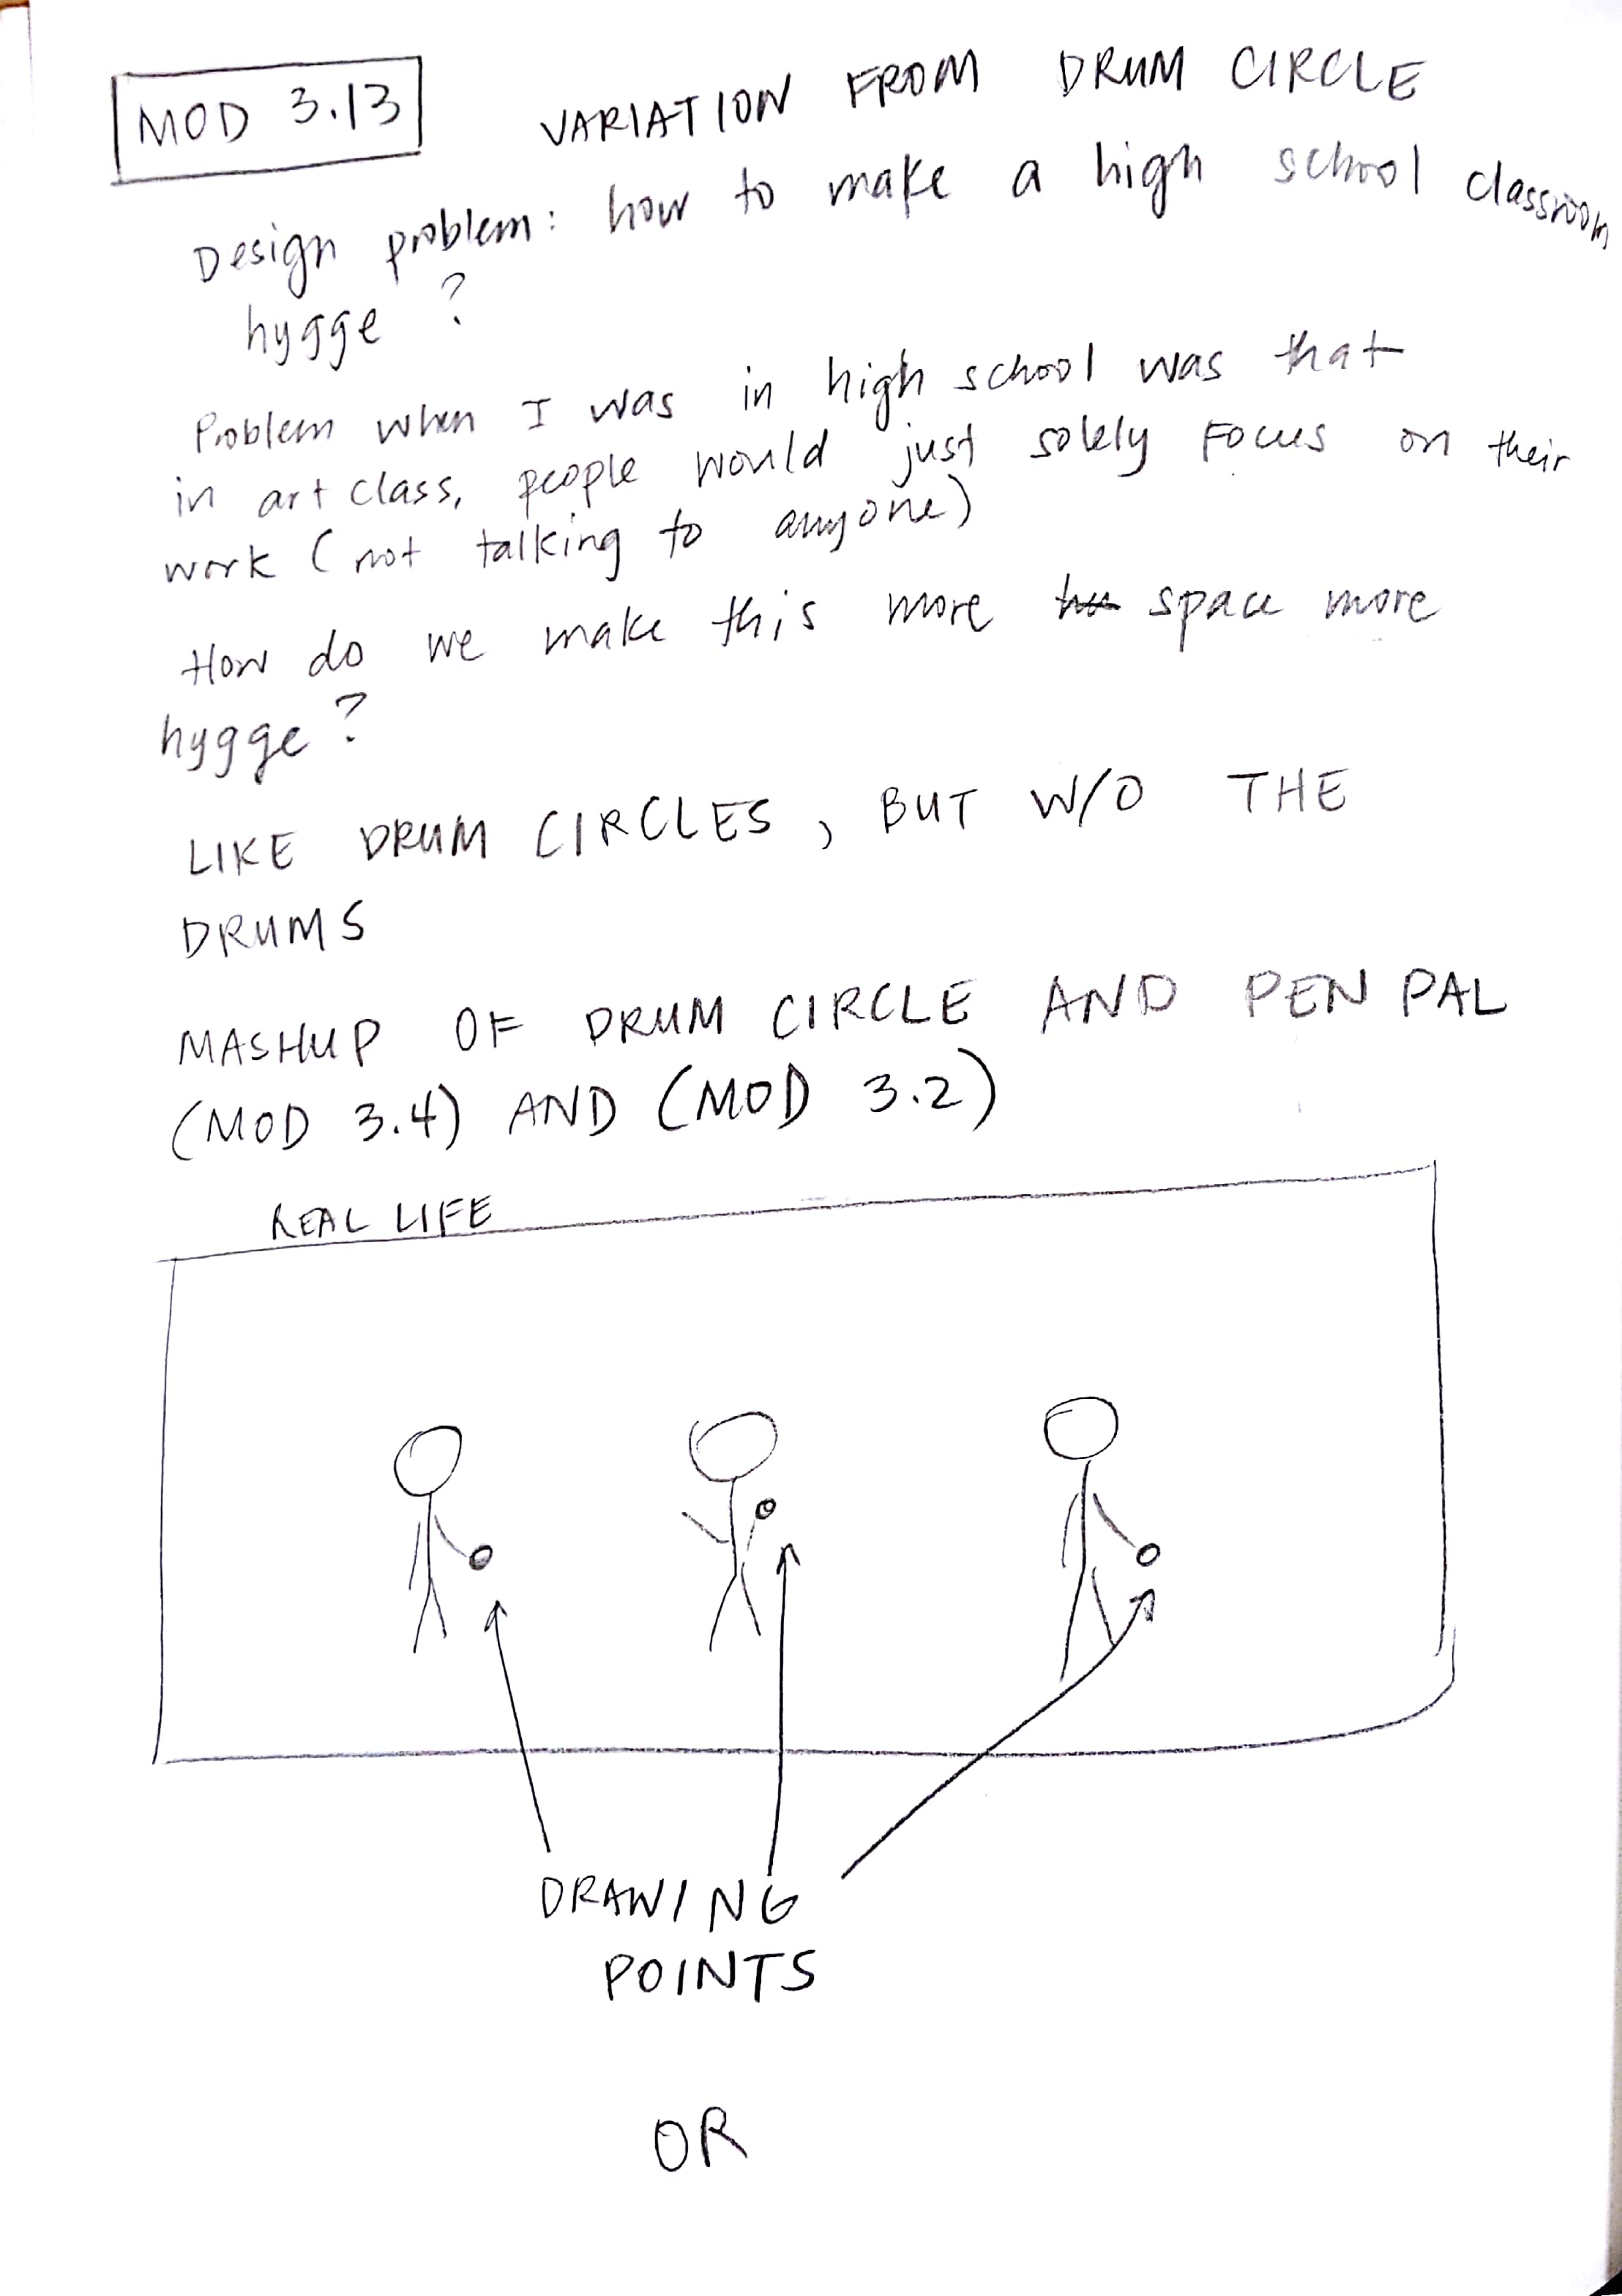 MOD 3.13
VARIATION FROM DRUM CIRCLE
Design problem: how to make a high school classroom
hygge?
Problem when I was in high school was that
in art class, people would just solely Focus on their
work (not talking to anyone)
How do we make this more space more
hygge?
LIKE DRUM CIRCLES, BUT W/O THE
DRUMS
MASHUP OF DRUM CIRCLE AND PEN PAL
(MOD 3.4) AND (MOD 3.2)
REAL LIFE
DRAWING
POINTS
OR